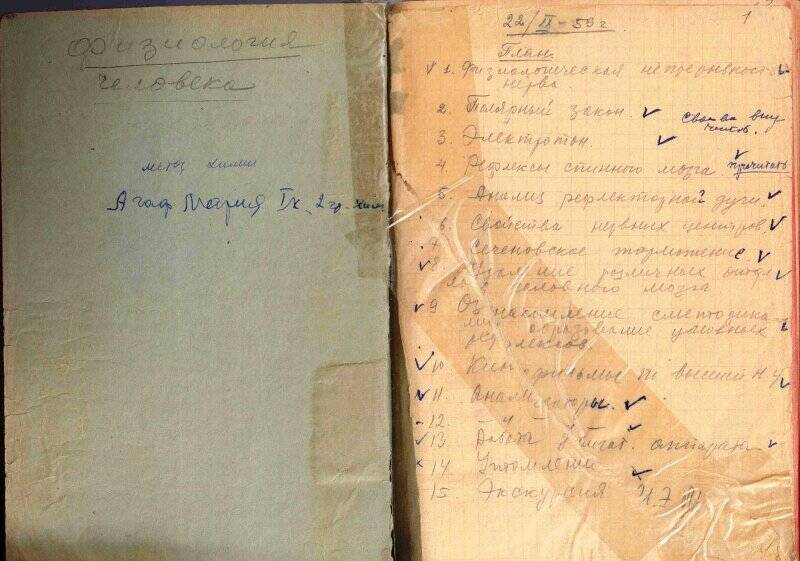 Физиология
человека
метод химии
Агаф Мария Iк. 2 гр.
1
22/II-59 г
План
1. Физиологическая непрерывность
нерва
2. Полярный закон.
3. Электротон.
4. Рефлексы спинного мозга прочитать
5. Анализ рефлекторной дуги.
6. Свойства нервных центров.
7. Сеченовское торможение
8 различных отдел
головного мозга
9
образование условных
рефлексов.
10 фильмы по высшей Н
11. Анализаторы.
12. – " –
13. аппарата
14 Утомление
15 Экскурсия